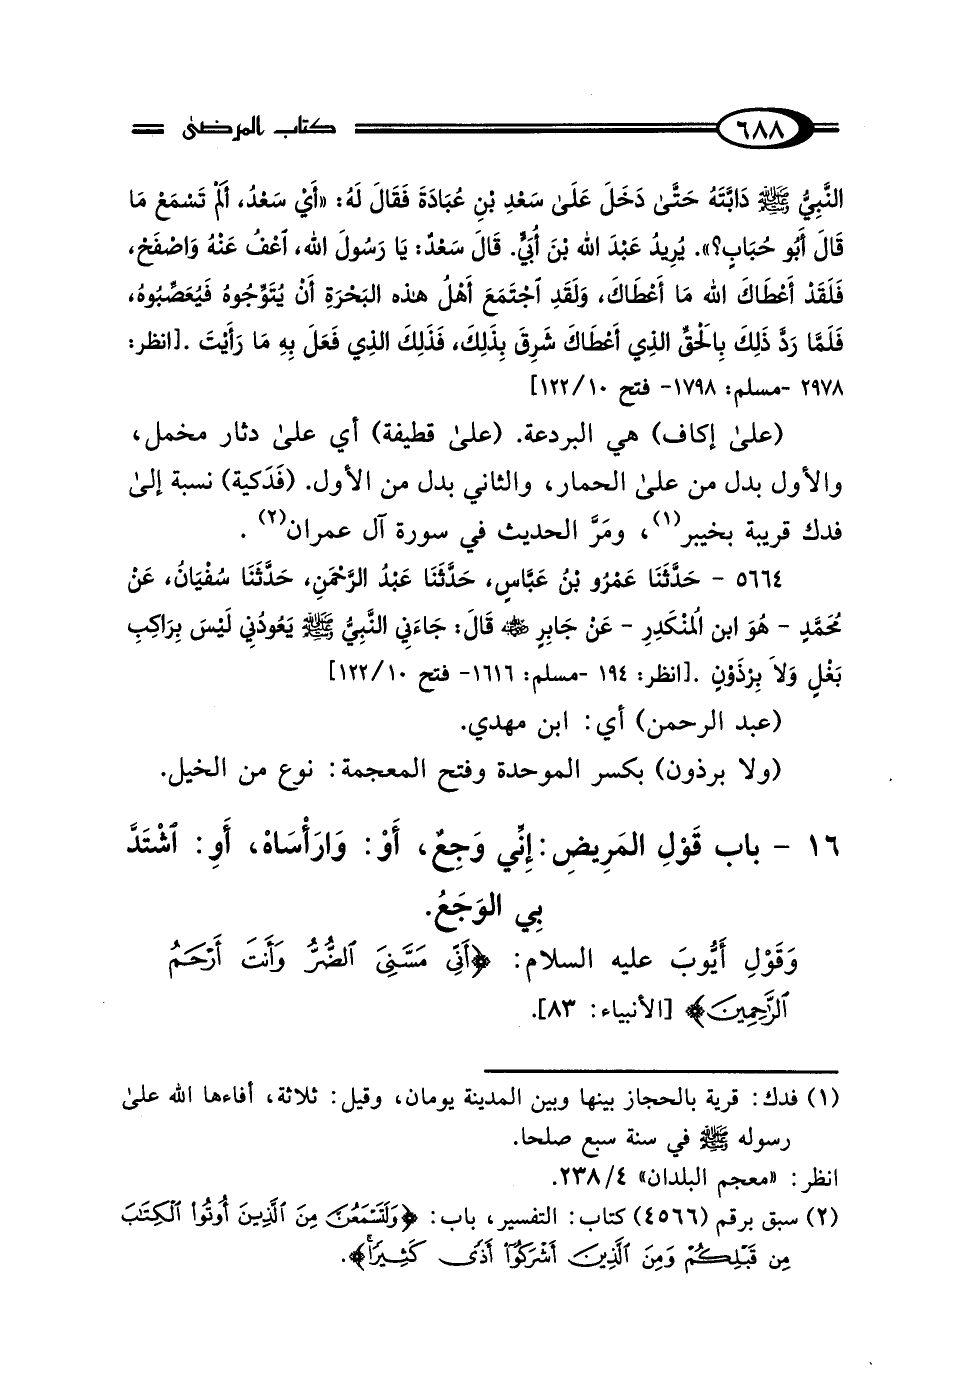 ٦٨٨ كتاب المرضىٰ
النَّبِيُّ ﷺ دَابَّتَهُ حَتَّىٰ دَخَلَ عَلَىٰ سَعْدِ بْنِ عُبَادَةَ فَقَالَ لَهُ: «أَيْ سَعْدُ، أَلَمْ تَسْمَعْ مَا
قَالَ أَبُو حُبَابٍ؟». يُرِيدُ عَبْدَ الله بْنَ أُبَيٍّ. قَالَ سَعْدٌ: يَا رَسُولَ الله، ٱعْفُ عَنْهُ وَاصْفَحْ،
فَلَقَدْ أَعْطَاكَ الله مَا أَعْطَاكَ، وَلَقَدِ ٱجْتَمَعَ أَهْلُ هٰذِه البَحْرَةِ أَنْ يُتَوِّجُوهُ فَيُعَصِّبُوهُ،
فَلَمَّا رَدَّ ذَلِكَ بِالْحَقِّ الذِي أَعْطَاكَ شَرِقَ بِذَلِكَ، فَذَلِكَ الذِي فَعَلَ بِهِ مَا رَأَيْتَ .[انظر:
٢٩٧٨ -مسلم: ١٧٩٨- فتح ١٠/ ١٢٢]
(علىٰ إكاف) هي البردعة. (علىٰ قطيفة) أي علىٰ دثار مخمل،
والأول بدل من علىٰ الحمار، والثاني بدل من الأول. (فَدَكية) نسبة إلىٰ
فدك قريبة بخيبر(١)، ومَرَّ الحديث في سورة آل عمران(٢) .
٥٦٦٤ - حَدَّثَنَا عَمْرُو بْنُ عَبَّاسٍ، حَدَّثَنَا عَبْدُ الرَّحْمَنِ، حَدَّثَنَا سُفْيَانُ، عَنْ
مُحَمَّدٍ - هُوَ ابن الُمْنْكَدِرِ - عَنْ جَابِرٍ ﷺ قَالَ: جَاءَنِي النَّبِيُّ ﷺ يَعُودُنِي لَيْسَ بِرَاكِبِ
بَغْلٍ وَلاَ بِرْذَوْنٍ .[انظر: ١٩٤ -مسلم: ١٦١٦- فتح ١٠/ ١٢٢]
(عبد الرحمن) أي: ابن مهدي.
(ولا برذون) بكسر الموحدة وفتح المعجمة: نوع من الخيل.
١٦ - باب قَوْلِ المَرِيضِ: إِنِّي وَجِعٌ، أَوْ: وَارَأْسَاهْ، أَوِ: ٱشْتَدَّ
بِي الوَجَعُ.
وَقَوْلِ أَيُّوبَ عليه السلام: ﴿أَنِّي مَسَّنِيَ ٱلضُّرُّ وَأَنتَ أَرْحَمُ
ٱلرَّٰحِمِينَ﴾ [الأنبياء: ٨٣].
(١) فدك: قرية بالحجاز بينها وبين المدينة يومان، وقيل: ثلاثة، أفاءها الله علىٰ
رسوله ﷺ في سنة سبع صلحا.
انظر: «معجم البلدان» ٢٣٨/٤.
(٢) سبق برقم (٤٥٦٦) كتاب: التفسير، باب: ﴿وَلَتَسْمَعُنَّ مِنَ ٱلَّذِينَ أُوتُوا۟ ٱلْكِتَٰبَ
مِن قَبْلِكُمْ وَمِنَ ٱلَّذِينَ أَشْرَكُوٓا۟ أَذًى كَثِيرًا﴾.